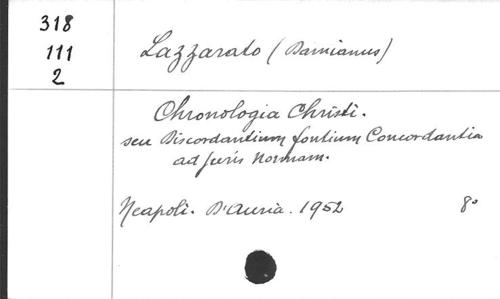 318
111
2
Lazzarato (Damianus)
Chronologia Christi.
seu Discordantium fontium Concordantia
ad juris normam.
Neapoli. D'Auria. 1952 8°